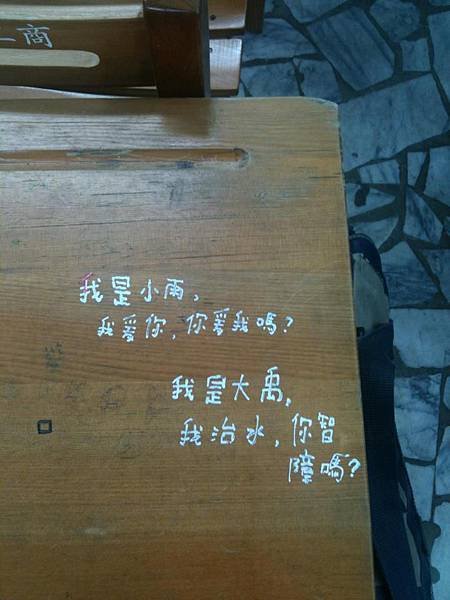 商
我是小雨,
我爱你,你爱我嗎?
我是大禹,
我治水,你智
障嗎?